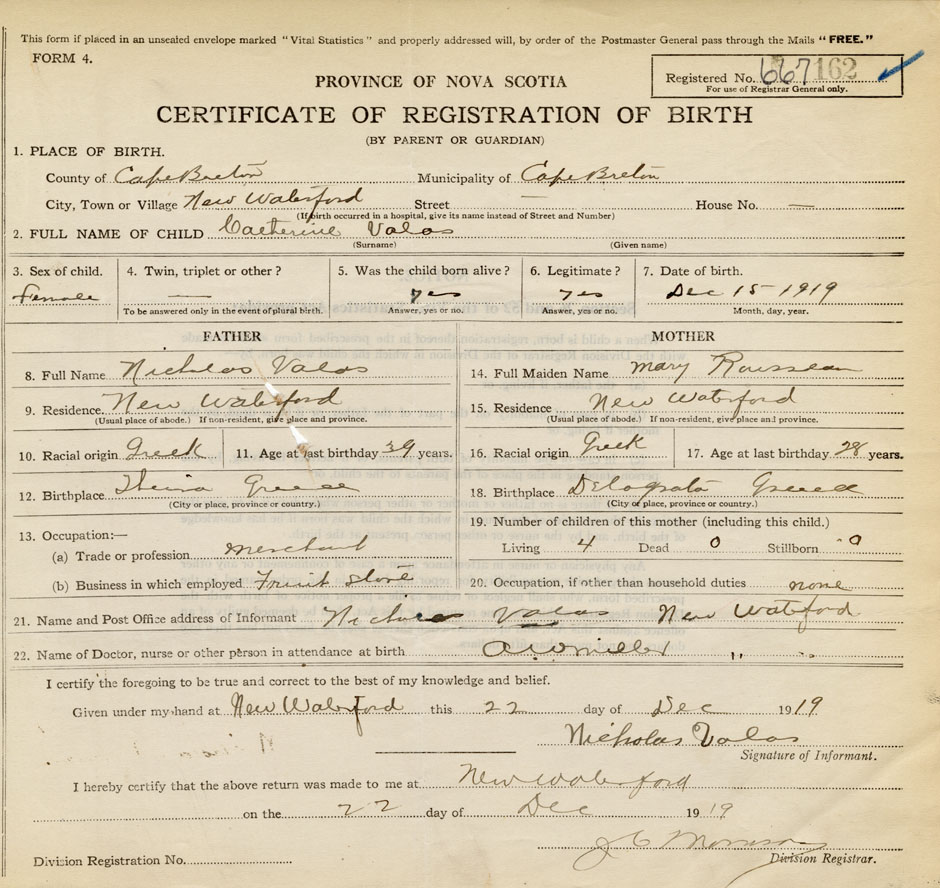 This form if placed in an unsealed envelope marked "Vital Statistics" and properly addressed will, by order of the Postmaster General pass through the Mails "FREE."
FORM 4.
Registered No. 667 162
For use of Registrar General only.
PROVINCE OF NOVA SCOTIA
CERTIFICATE OF REGISTRATION OF BIRTH
(BY PARENT OR GUARDIAN)
1. PLACE OF BIRTH.
County of Cape Breton Municipality of Cape Breton
City, Town or Village New Waterford Street — House No. —
(If birth occurred in a hospital, give its name instead of Street and Number)
2. FULL NAME OF CHILD Catherine Valas
(Surname) (Given name)
3. Sex of child. 4. Twin, triplet or other? 5. Was the child born alive? 6. Legitimate? 7. Date of birth.
Female — yes yes Dec 15 1919
To be answered only in the event of plural birth. Answer, yes or no. Answer, yes or no. Month, day, year.
FATHER MOTHER
8. Full Name Nicholas Valas 14. Full Maiden Name Mary
9. Residence. New Waterford 15. Residence New Waterford
(Usual place of abode.) If non-resident, give place and province. (Usual place of abode.) If non-resident, give place and province.
10. Racial origin Greek 11. Age at last birthday 39 years. 16. Racial origin Greek 17. Age at last birthday 28 years.
12. Birthplace Greece 18. Birthplace Greece
(City or place, province or country.) (City or place, province or country.)
13. Occupation:— 19. Number of children of this mother (including this child.)
(a) Trade or profession merchant Living 4 Dead 0 Stillborn 0
(b) Business in which employed Fruit Store 20. Occupation, if other than household duties none
21. Name and Post Office address of Informant Nicholas Valas New Waterford
22. Name of Doctor, nurse or other person in attendance at birth A W Miller " "
I certify the foregoing to be true and correct to the best of my knowledge and belief.
Given under my hand at New Waterford this 22 day of Dec 1919
Nicholas Valas
Signature of Informant.
I hereby certify that the above return was made to me at New Waterford
on the 22 day of Dec 1919
J C Morrison
Division Registration No. Division Registrar.